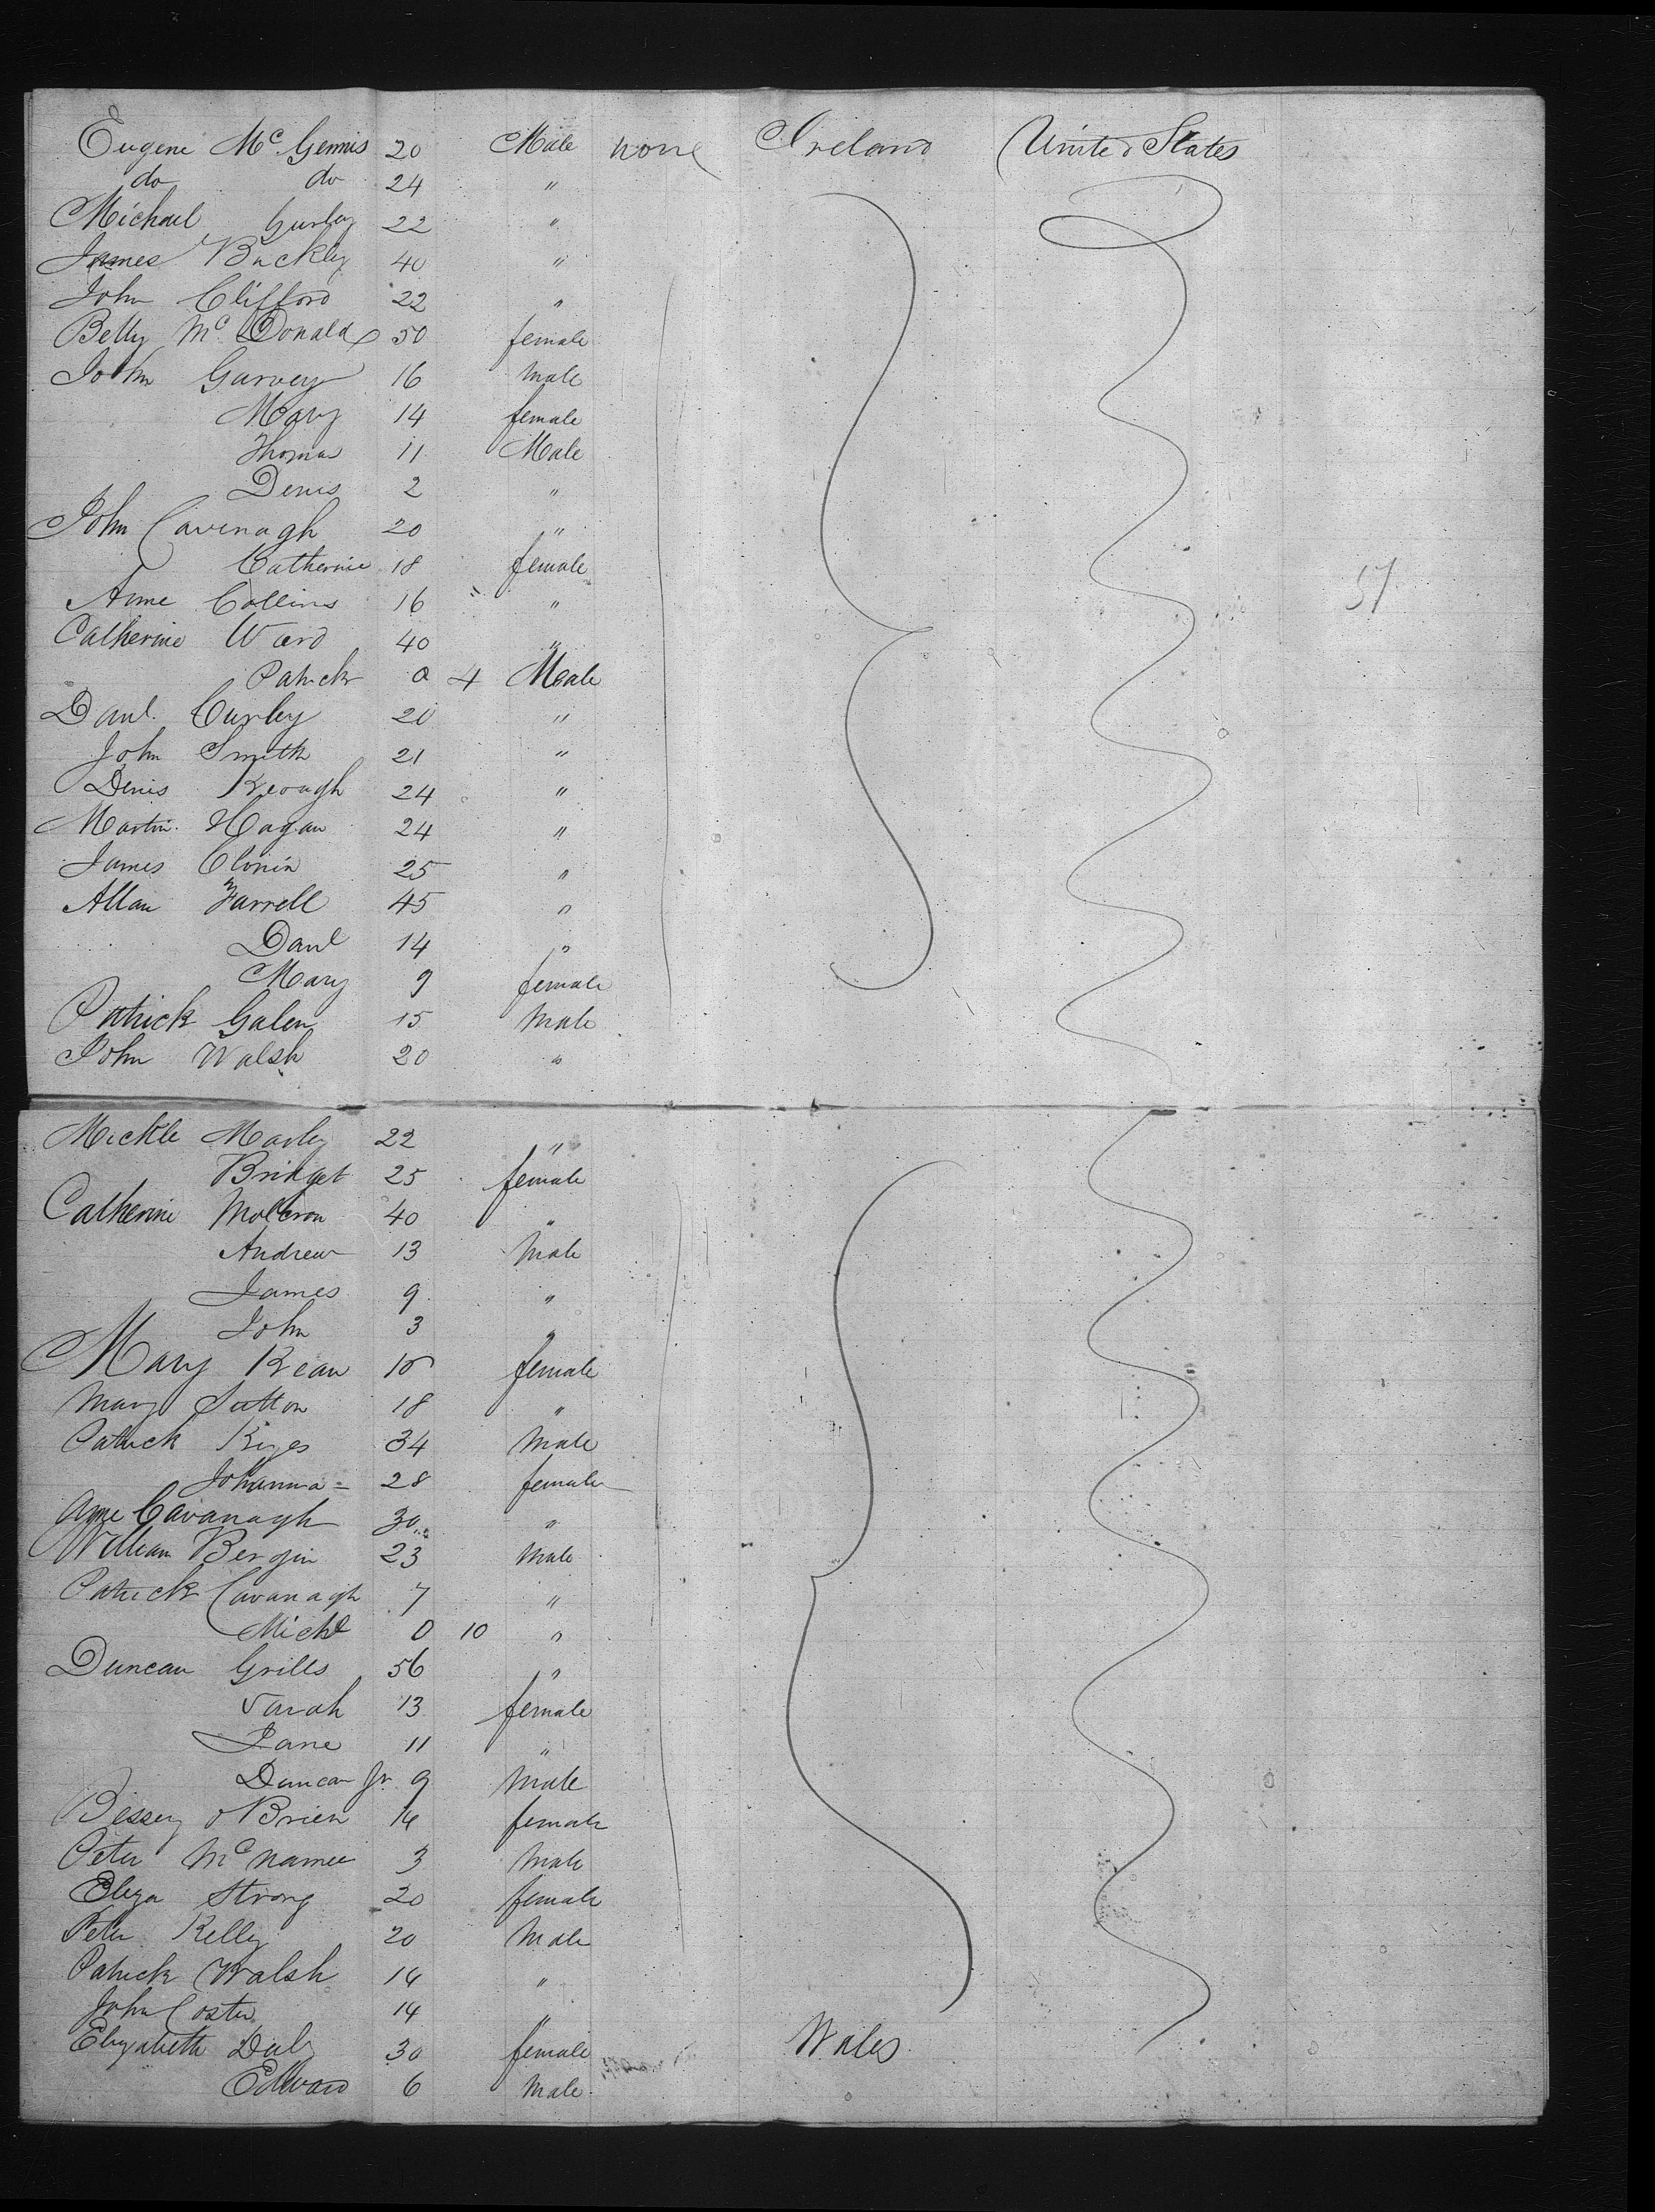 Eugene Mc Gennis 20 Male none Ireland United States
do do 24 "
Michael Gurley 22 "
James Buckley 40 "
John Clifford 22 "
Betty Mc Donald 50 female
John Garvey 16 male
Mary 14 female
Thomas 11 Male
Denis 2 "
John Cavenagh 20 "
Catherine 18 female
Anne Collins 16 "
Catherine Ward 40 "
Patrick 0 4 Male
Danl. Curley 20 "
John Smith 21 "
Denis Keough 24 "
Martin Hagan 24 "
James Clonin 25 "
Allan Farrell 45 "
Danl 14 "
Mary 9 female
Patrick Galen 15 Male
John Walsh 20 "
57
Mickle Marley 22 "
Bridget 25 female
Catherine 40 "
Andrew 13 Male
James 9 "
John 3 "
Mary Kean female
Mary Sutton 18 "
Patrick Kyes 34 Male
Johanna = 28 female
Anne Cavanagh 30 "
William Bergin 23 Male
Patrick Cavanagh 7 "
Michl 0 10 "
Duncan Grills 56 "
Sarah 13 female
Jane 11 "
Duncan Jr. 9 Male
Bessey oBrien 14 female
Peter Mc namee 3 Male
Eliza Strong 20 female
Peter Kelly 20 Male
Patrick Walsh 14 "
John Coster 14 "
Elizabeth Daly 30 female Wales
Edward 6 Male